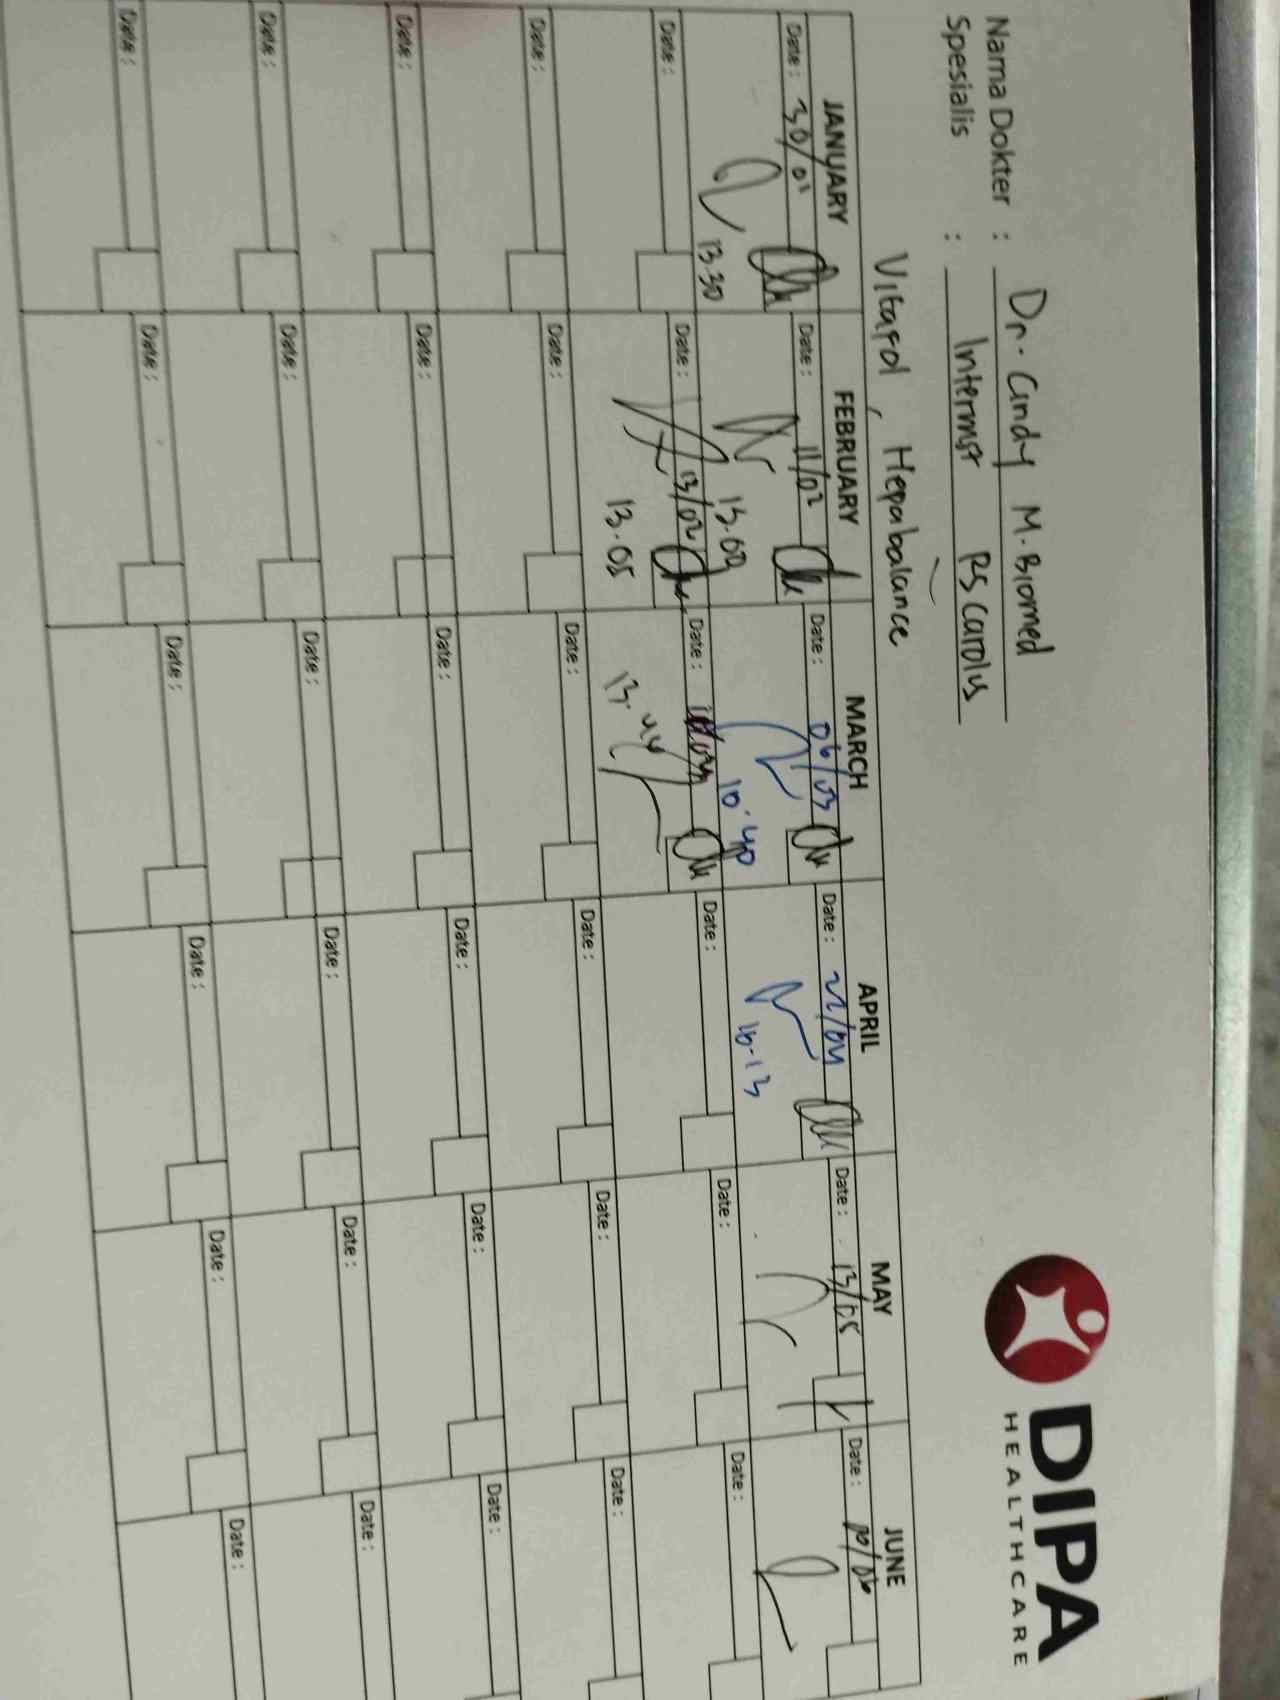 DIPA
HEALTHCARE
Nama Dokter : Dr. Cindy M. Biomed
Spesialis : Internist RS Carolus
Vitafol, Hepabalance
JANUARY FEBRUARY MARCH APRIL MAY JUNE
Date: 30/01 Date: 11/02 Date: 06/03 Date: 22/04 Date: 13/05 Date: 10/06
13.30 13.00 10.40 10.13
Date: Date: 13/02 Date: Date: Date: Date:
13.05 13.44
Date: Date: Date: Date: Date: Date:
Date: Date: Date: Date: Date: Date:
Date: Date: Date: Date: Date: Date:
Date: Date: Date: Date: Date: Date: